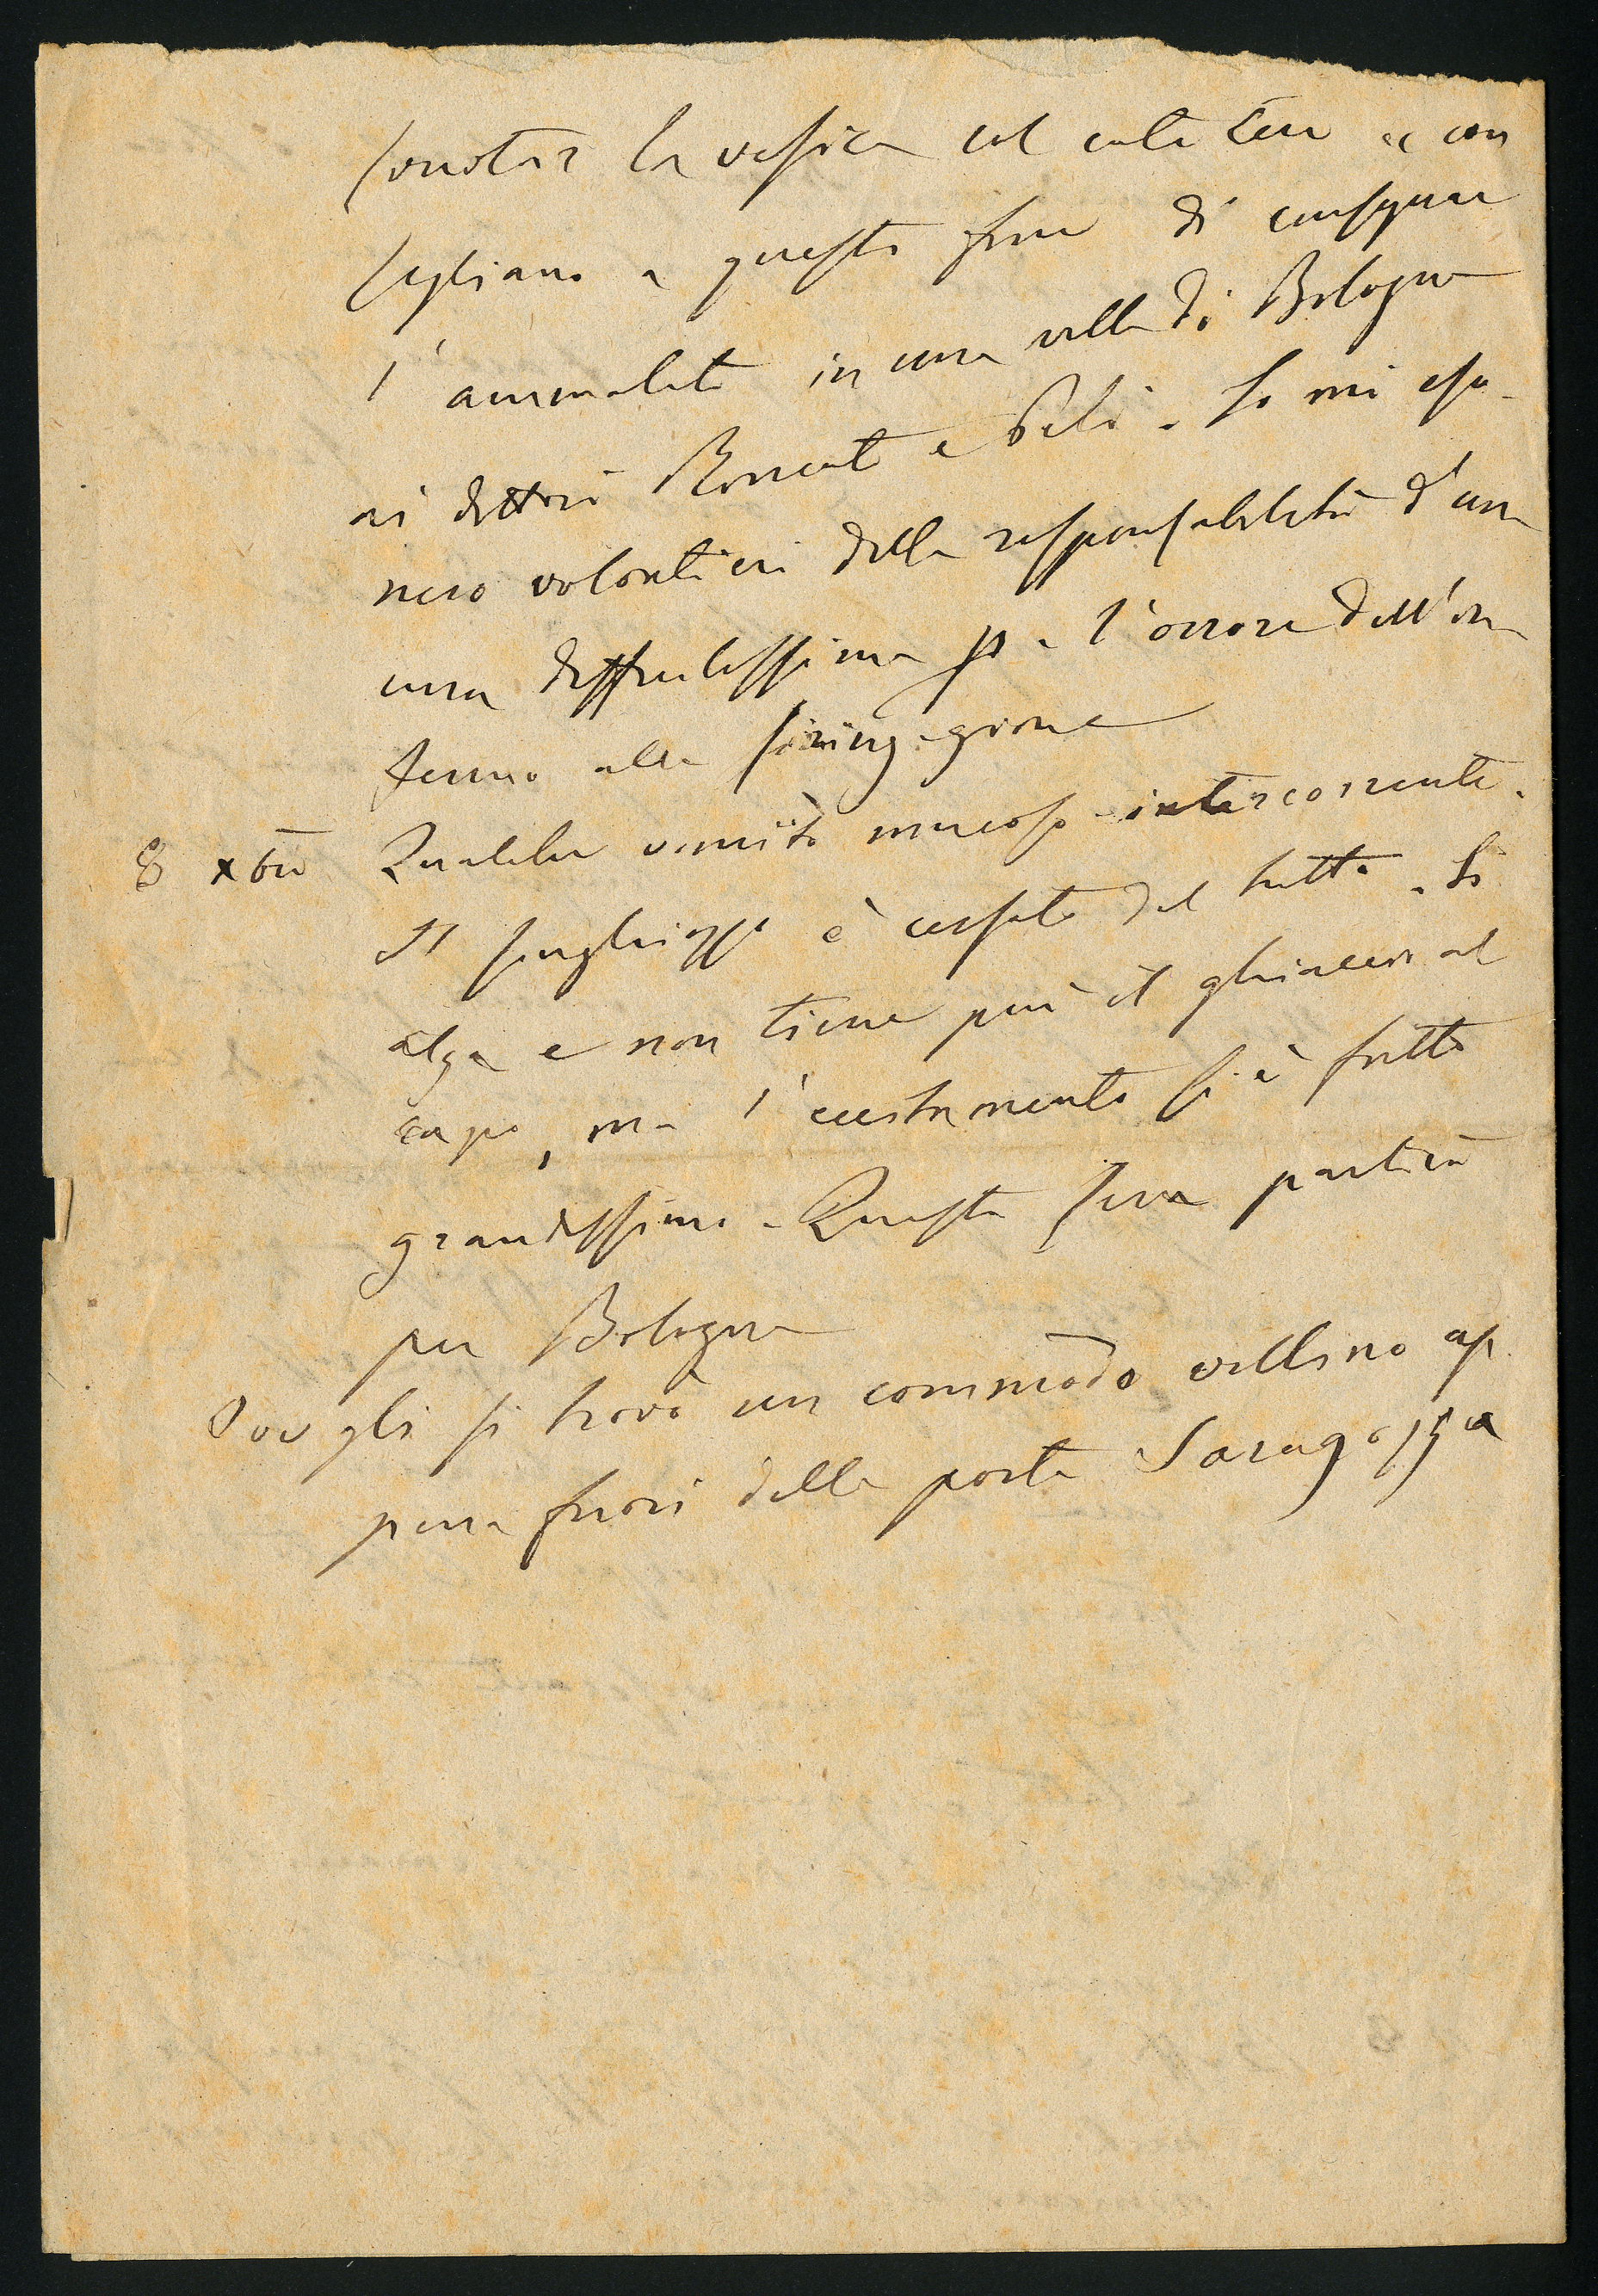 svuotar la vesica col catetere e con
sigliano a questo fine di consegnare
l'ammalato in una villa di Bologna
ai dottori Roncati e Peli. Io mi eso
nero volontieri della responsabilità d'una
cura difficilissima p. l'orrore dell'in
fermo alla siringagione
8 xbre Qualche vomito mucoso intercorrente.
Il singhiozzo è cessato del tutto. Si
alza e non tiene più il ghiaccio al
capo, ma l' si è fatto
grandissimo. Questa sera partirà
per Bologna
Ove gli si trovò un commodo villino ap
pena fuori della porta Saragozza